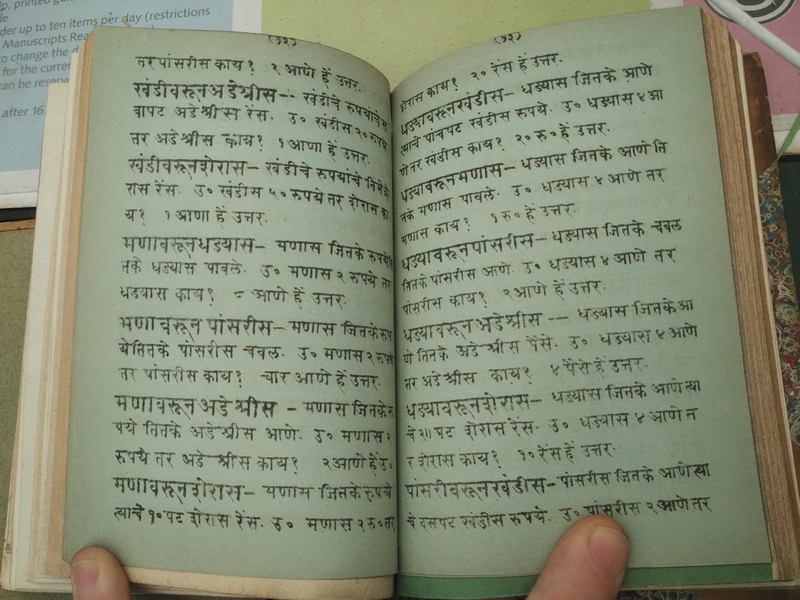 (५२)
तर पांसरीस काय? २ आणे हें उत्तर.
खंडीवरून अडेश्रीस-- खंडीचे रुपयांचे स
वापट अडेश्रीस रेंस. उ० खंडीस २० रुपये
तर अडेश्रीस काय? १ आणा हें उत्तर.
खंडीवरून शेरास- खंडीचे रुपयांचे निमे शे
रास रेंस. उ० खंडीस ५० रुपये तर शेरास का
य? १ आणा हें उत्तर.
मणावरून धडयास- मणास जितके रुपये ति
तके धडयास पावले. उ० मणास २ रुपये तर
धडयास काय? = आणे हें उत्तर.
मणावरून पांसरीस- मणास जितके रुप
ये तितके पांसरीस चवल. उ० मणास २ रुपये
तर पांसरीस काय? चार आणे हें उत्तर.
मणावरून अडेश्रीस - मणास जितके रु
पये तितके अडेश्रीस आणे. उ० मणास २
रुपये तर अडेश्रीस काय? २ आणे हें उ०
मणावरून शेरास- मणास जितके रुपये
त्याचे १० पट शेरास रेंस. उ० मणास २ रु० तर
(५३)
शेरास काय? २० रेंस हें उत्तर.
धडयावरून खंडीस- धडयास जितके आणे
त्याचे पांचपट खंडीस रुपये. उ० धडयास ४ आ
णे तर खंडीस काय? २० रु० हें उत्तर.
धडयावरून मणास- धडयास जितके आणे ति
तके मणास पावले. उ० धडयास ४ आणे तर
मणास काय? १ रु० हें उत्तर.
धडयावरून पांसरीस- धडयास जितके चवल
तितके पांसरीस आणे. उ० धडयास ४ आणे तर
पांसरीस काय? २ आणे हें उत्तर.
धडयावरून अडेश्रीस -- धडयास जितके आ
णे तितके अडेश्रीस पैसे. उ० धडयास ४ आणे
तर अडेश्रीस काय? ४ पैसे हें उत्तर.
धडयावरून शेरास- धडयास जितके आणे त्या
चे २॥ पट शेरास रेंस. उ० धडयास ४ आणे त
र शेरास काय? १० रेंस हें उत्तर.
पांसरीवरून खंडीस- पांसरीस जितके आणे त्या
चे दसपट खंडीस रुपये. उ० पांसरीस २ आणे तर
printed
der up to ten items per day (restrictions
Manuscripts Rea
to change the d
for the curren
can be reser
after 16